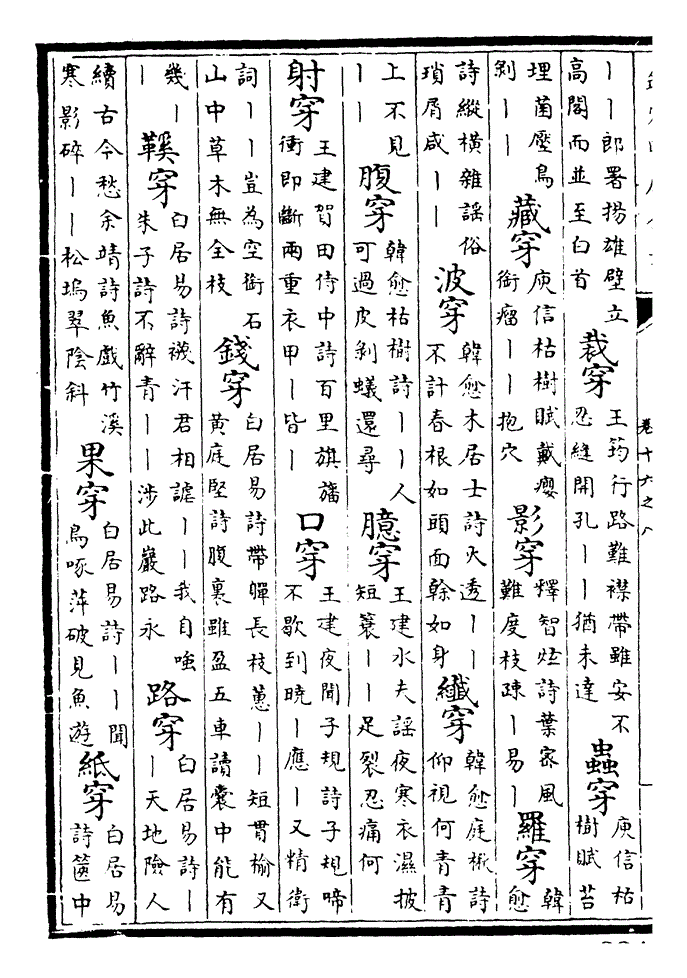 卷十六之八
｜｜郎署揚雄壁立
高閣而並至白首
裁穿
王筠行路難襟帶雖安不
忍縫開孔｜｜猶未達
蟲穿
庾信枯
樹賦苔
埋菌壓鳥
剝｜｜
藏穿
庾信枯樹賦戴癭
銜瘤｜｜抱穴
影穿
釋智炫詩葉密風
難度枝疎｜易｜
羅穿
韓
愈
詩縱横雜謡俗
瑣屑咸｜｜
波穿
韓愈木居士詩火透｜｜
不計春根如頭面榦如身
纎穿
韓愈庭楸詩
仰視何青青
上不見
｜｜
腹穿
韓愈枯樹詩｜｜人
可過皮剝蟻還尋
臆穿
王建水夫謡夜寒衣濕披
短蓑｜｜足裂忍痛何
射穿
王建賀田侍中詩百里旗旛
衝即斷兩重衣甲｜皆｜
口穿
王建夜聞子規詩子規啼
不歇到曉｜應｜又精衛
詞｜｜豈為空銜石
山中草木無全枝
錢穿
白居易詩帶軃長枝蕙｜｜短貫榆又
黄庭堅詩腹裏雖盈五車讀囊中能有
幾｜
｜
鞵穿
白居易詩襪汗君相謔｜｜我自咍
朱子詩不辭青｜｜｜涉此巖路永
路穿
白居易詩｜
｜天地險人
續古今愁余靖詩魚戲竹溪
寒影碎｜｜松塢翠陰斜
果穿
白居易詩｜｜聞
鳥啄萍破見魚遊
紙穿
白居易
詩篋中